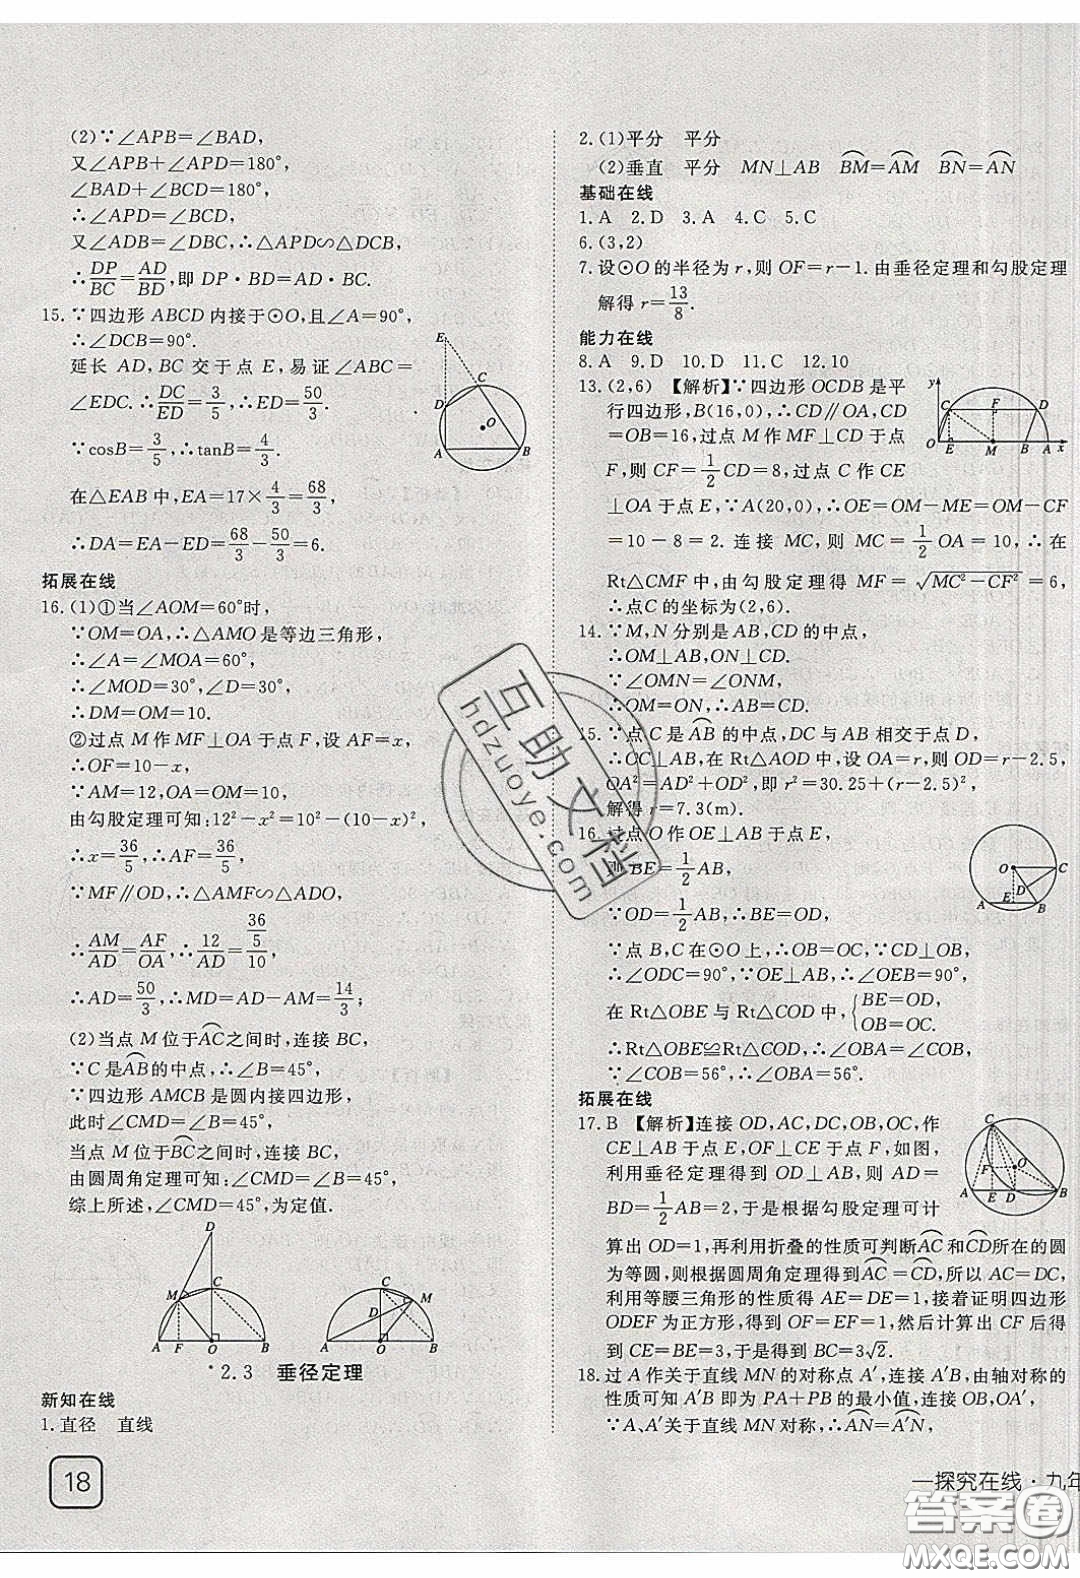 (2)∵∠APB=∠BAD,
又∠APB+∠APD=180°,
∠BAD+∠BCD=180°,
∴∠APD=∠BCD,
又∠ADB=∠DBC,∴△APD∽△DCB,
∴DP/BC=AD/BD,即 DP·BD=AD·BC.
15.∵四边形 ABCD 内接于⊙O,且∠A=90°,
∴∠DCB=90°.
延长 AD,BC 交于点 E,易证∠ABC=
∠EDC.∴DC/ED=3/5,∴ED=50/3.
∵cosB=3/5,∴tanB=4/3.
在△EAB 中,EA=17×4/3=68/3,
∴DA=EA−ED=68/3−50/3=6.
E
C
D
O
A
B
拓展在线
16.(1)①当∠AOM=60°时,
∵OM=OA,∴△AMO 是等边三角形,
∴∠A=∠MOA=60°,
∴∠MOD=30°,∠D=30°,
∴DM=OM=10.
②过点 M 作 MF⊥OA 于点 F,设 AF=x,
∴OF=10−x,
∵AM=12,OA=OM=10,
由勾股定理可知:12²−x²=10²−(10−x)²,
∴x=36/5,∴AF=36/5,
∵MF∥OD,∴△AMF∽△ADO,
∴AM/AD=AF/OA,∴12/AD=(36/5)/10
∴AD=50/3,∴MD=AD−AM=14/3;
(2)当点 M 位于A͡C之间时,连接 BC,
∵C 是A͡B的中点,∴∠B=45°,
∵四边形 AMCB 是圆内接四边形,
此时∠CMD=∠B=45°,
当点 M 位于B͡C之间时,连接 BC,
由圆周角定理可知:∠CMD=∠B=45°,
综上所述,∠CMD=45°,为定值.
D
M C
A F O B
C
D M
A O B
2.3 垂径定理
新知在线
1.直径 直线
18
2.(1)平分 平分
(2)垂直 平分 MN⊥AB B͡M=A͡M B͡N=A͡N
基础在线
1.A 2.D 3.A 4.C 5.C
6.(3,2)
7.设⊙O 的半径为 r,则 OF=r−1.由垂径定理和勾股定理
解得 r=13/8.
能力在线
8.A 9.D 10.D 11.C 12.10
13.(2,6) 【解析】∵四边形 OCDB 是平
行四边形,B(16,0),∴CD∥OA,CD
=OB=16,过点 M 作 MF⊥CD 于点
F,则 CF=1/2CD=8,过点 C 作 CE
⊥OA 于点 E,∵A(20,0),∴OE=OM−ME=OM−CF
=10−8=2. 连接 MC,则 MC=1/2OA=10,∴在
Rt△CMF 中,由勾股定理得 MF=√(MC²−CF²)=6,
∴点C 的坐标为(2,6).
y
C F D
O E M B A x
14.∵M,N 分别是 AB,CD 的中点,
∴OM⊥AB,ON⊥CD.
∵∠OMN=∠ONM,
∴OM=ON,∴AB=CD.
15.∵点 C 是A͡B的中点,DC 与 AB 相交于点 D,
∴OC⊥AB,在 Rt△AOD 中,设 OA=r,则 OD=r−2.5,
OA²=AD²+OD²,即 r²=30.25+(r−2.5)²,
解得 r=7.3(m).
16.过点 O 作 OE⊥AB 于点 E,
则 BE=1/2AB,
∵OD=1/2AB,∴BE=OD,
∵点 B,C 在⊙O 上,∴OB=OC,∵CD⊥OB,
∴∠ODC=90°,∵OE⊥AB,∴∠OEB=90°,
在 Rt△OBE 与 Rt△COD 中,{BE=OD,
OB=OC.
∴Rt△OBE≌Rt△COD,∴∠OBA=∠COB,
∵∠COB=56°,∴∠OBA=56°.
O C
D
A E B
拓展在线
17.B 【解析】连接 OD,AC,DC,OB,OC,作
CE⊥AB 于点 E,OF⊥CE 于点 F,如图,
利用垂径定理得到 OD⊥AB,则 AD=
BD=1/2AB=2,于是根据勾股定理可计
算出 OD=1,再利用折叠的性质可判断A͡C 和C͡D所在的圆
为等圆,则根据圆周角定理得到A͡C=C͡D,所以 AC=DC,
利用等腰三角形的性质得 AE=DE=1,接着证明四边形
ODEF 为正方形,得到 OF=EF=1,然后计算出 CF 得到
CE=BE=3,于是得到 BC=3√2.
C
F O
A E D B
18.过 A 作关于直线 MN 的对称点 A′,连接 A′B,由轴对称的
性质可知 A′B 即为 PA+PB 的最小值,连接 OB,OA′,
∵A、A′关于直线 MN 对称,∴A͡N=A͡′N,
一探究在线·九年
互助文档
hdzuoye.com
答案圈
MXQE.COM